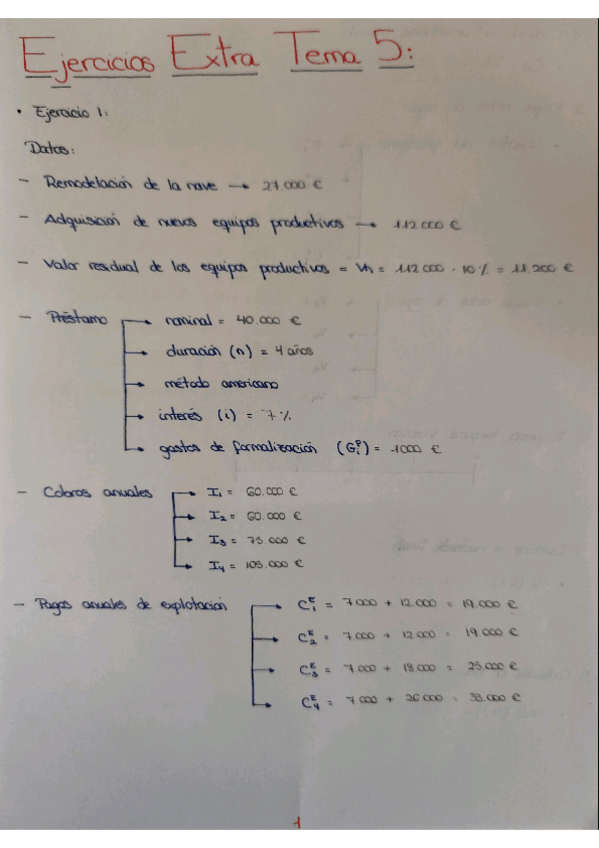 Ejercicios Extra Tema 5:
• Ejercicio 1:
Datos:
- Remodelación de la nave → 27.000 €
- Adquisición de nuevos equipos productivos → 112.000 €
- Valor residual de los equipos productivos = Vn = 112.000 · 10% = 11.200 €
- Préstamo → nominal = 40.000 €
→ duración (n) = 4 años
→ método americano
→ interés (i) = 7%
→ gastos de formalización (G₁ᵖ) = 1000 €
- Cobros anuales → I₁ = 60.000 €
→ I₂ = 60.000 €
→ I₃ = 75.000 €
→ I₄ = 105.000 €
- Pagos anuales de explotación → C₁ᴱ = 7.000 + 12.000 = 19.000 €
→ C₂ᴱ = 7.000 + 12.000 = 19.000 €
→ C₃ᴱ = 7.000 + 18.000 = 25.000 €
→ C₄ᴱ = 7.000 + 26.000 = 33.000 €
1